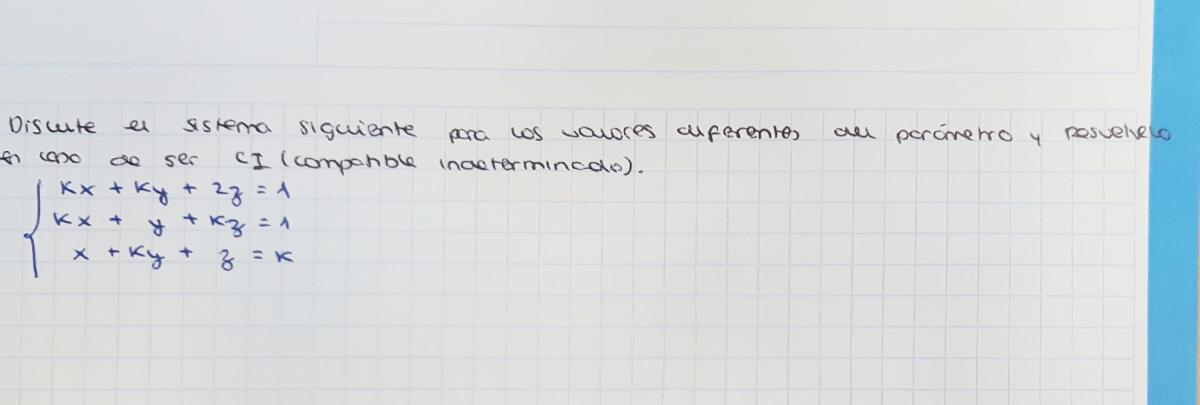 Discute el sistema siguiente para los valores diferentes del parámetro y resuelvelo
en caso de ser CI (compatible indeterminado).
Kx + Ky + 2z = 1
Kx + y + Kz = 1
x + Ky + z = K